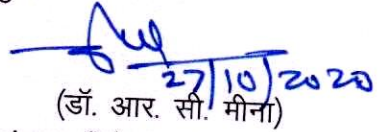 27/10/2020
(डॉ. आर. सी. मीना)